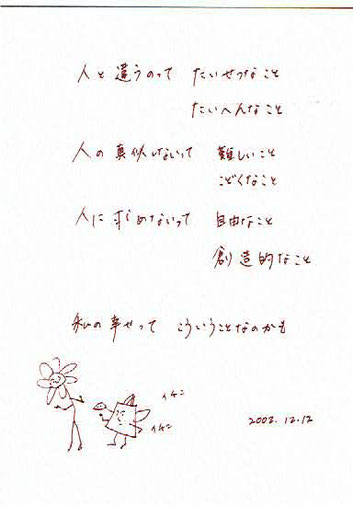 人と違うのって たいせつなこと
たいへんなこと
人の真似しないって 難しいこと
こどくなこと
人に求めないって 自由なこと
創造的なこと
私の幸せって こういうことなのかも
イチニ
イチニ
2002.12.12